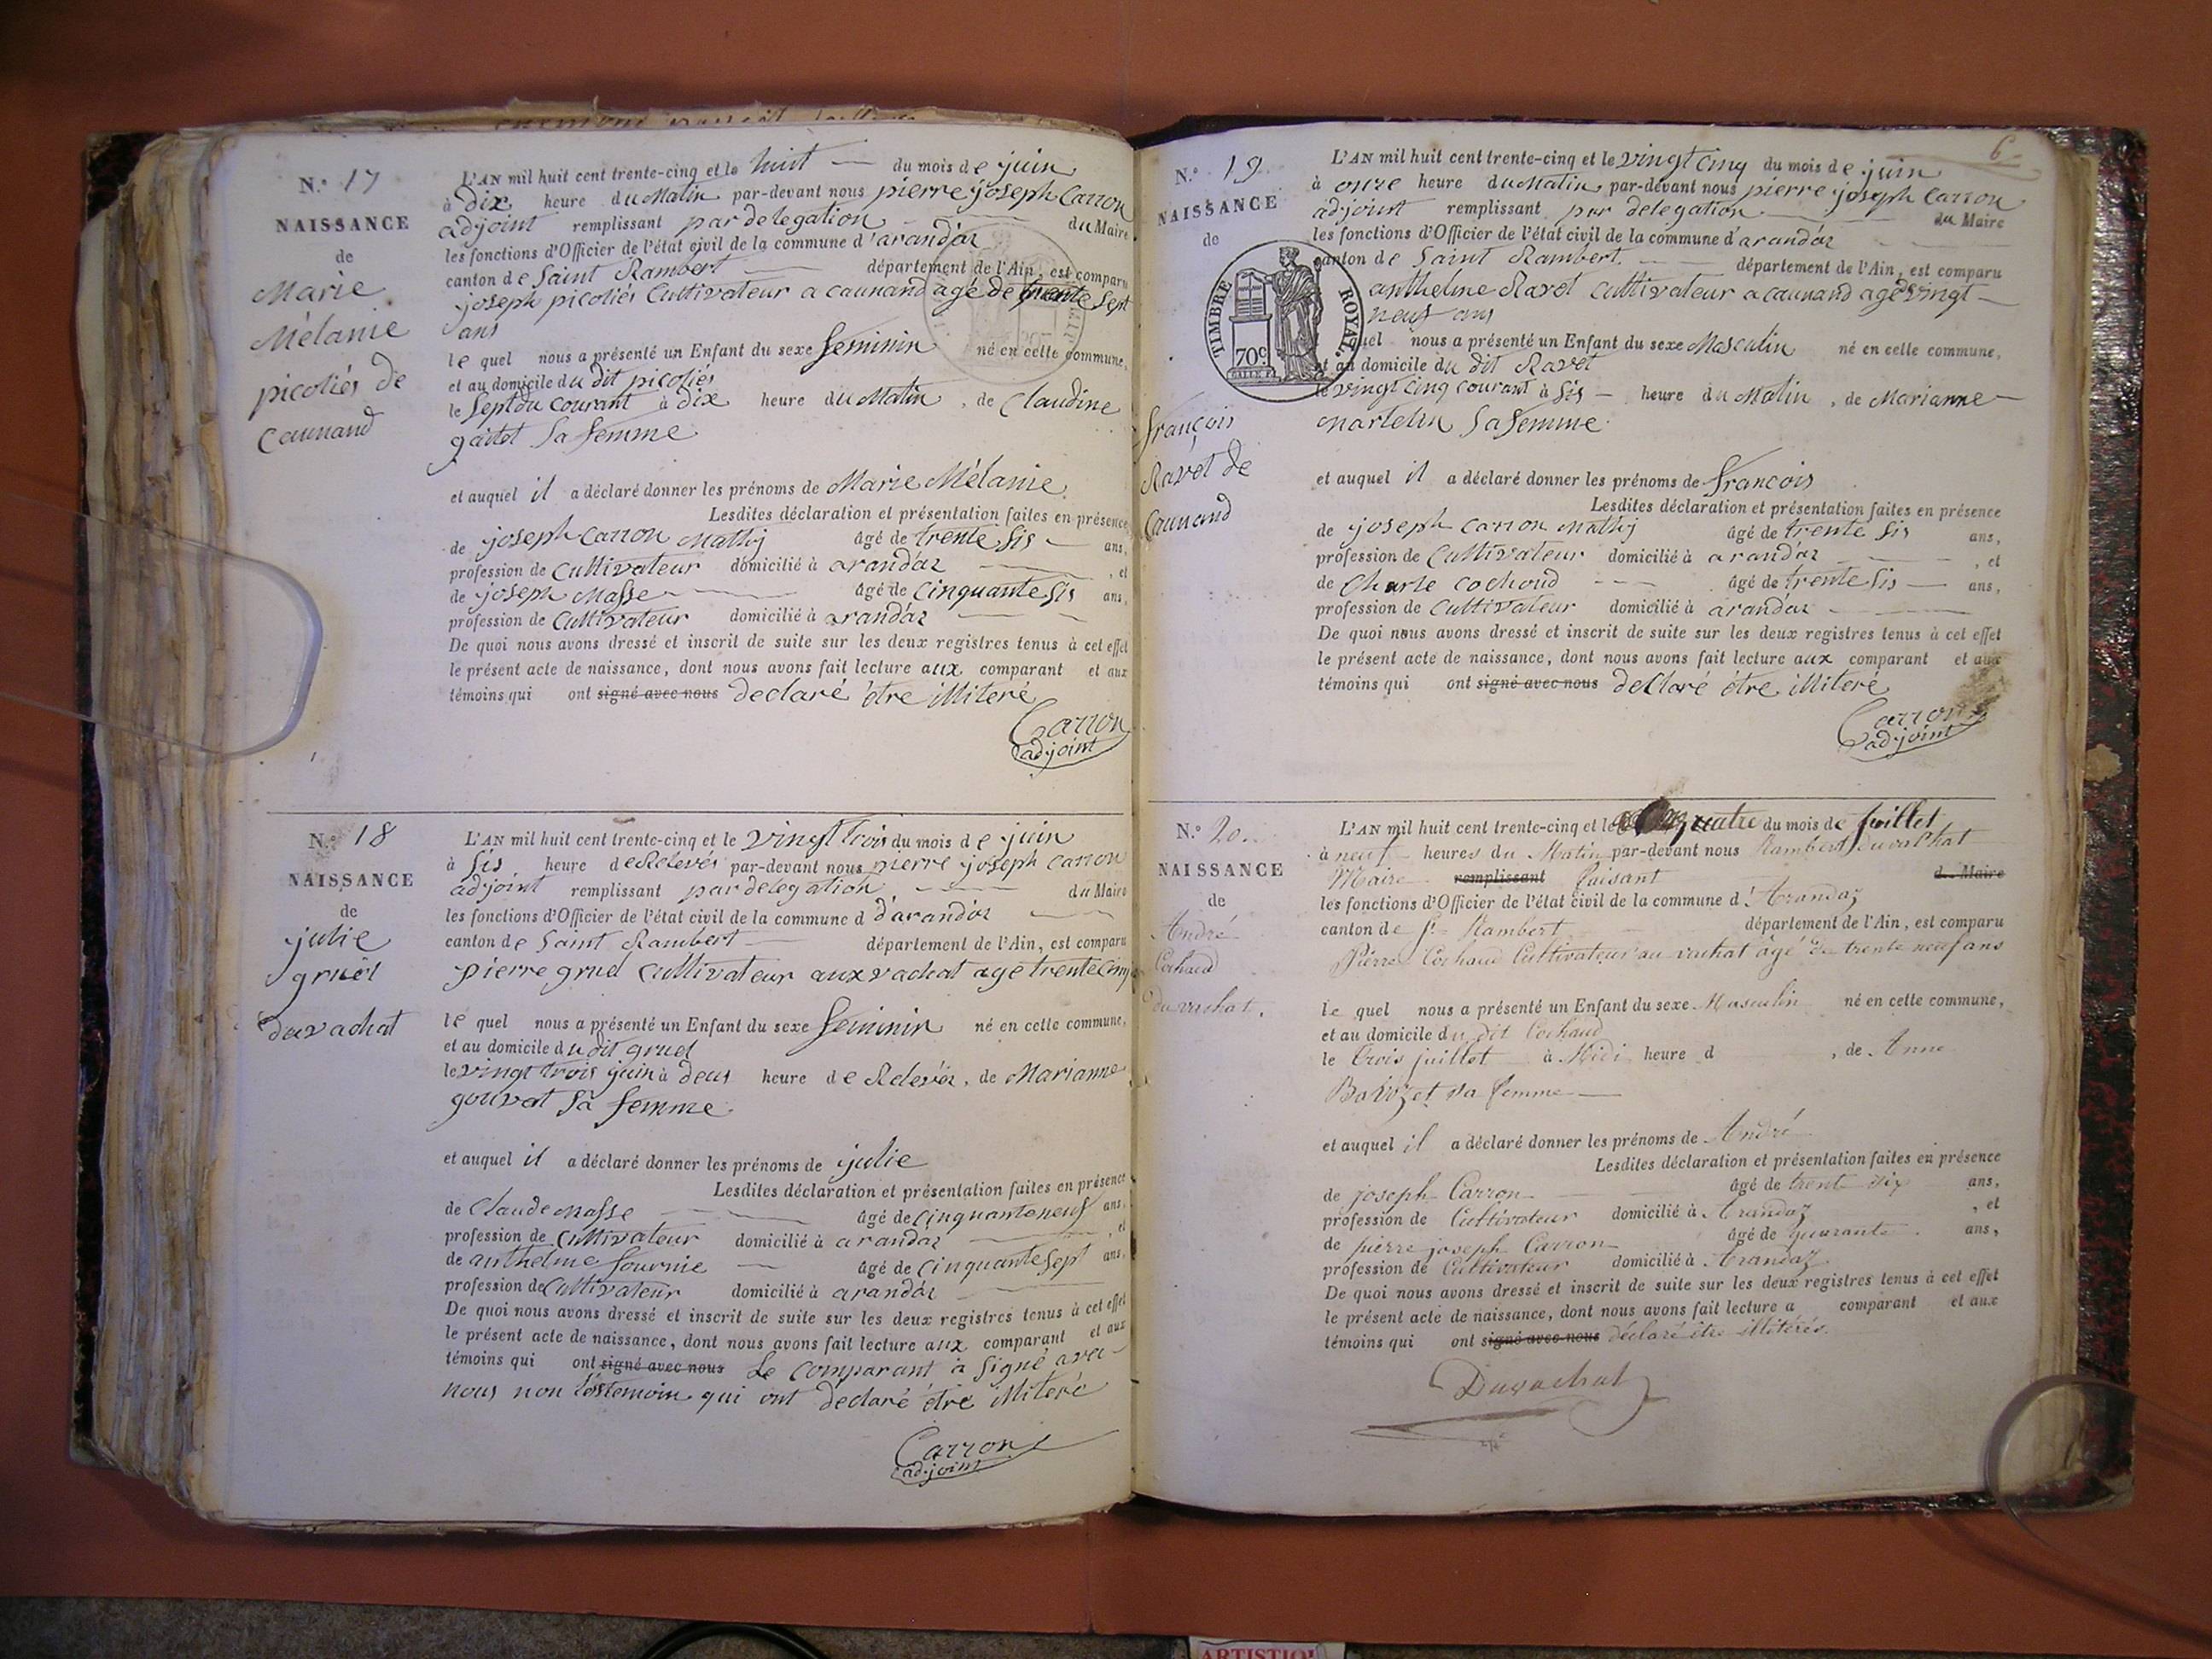 N.º 17
NAISSANCE
de
Marie
Mélanie
picoliés de
caunand
L'AN mil huit cent trente-cinq et le huit du mois de juin
à Dix heure du Matin par-devant nous pierre joseph Carron
adjoint remplissant par delegation du Maire
les fonctions d'Officier de l'état civil de la commune d'arandaz
canton de Saint Rambert département de l'Ain, est comparu
joseph picoliés Cultivateur a caunand agé de trente Sept
ans
le quel nous a présenté un Enfant du sexe feminin né en cette commune,
et au domicile du dit picoliés
le Sept du courant à dix heure du Matin, de Claudine
Sa femme
et auquel il a déclaré donner les prénoms de Marie Mélanie
Lesdites déclaration et présentation faites en présence
de joseph Carron Mathy âgé de trente Sis ans,
profession de Cultivateur domicilié à arandaz, et
de joseph Masse âgé de cinquante Sis ans,
profession de Cultivateur domicilié à arandaz
De quoi nous avons dressé et inscrit de suite sur les deux registres tenus à cet effet
le présent acte de naissance, dont nous avons fait lecture aux comparant et aux
témoins qui ont signé avec nous declaré être illiteré
Carron
adjoint
N.º 18
NAISSANCE
de
julie
gruel
du vachat
L'AN mil huit cent trente-cinq et le vingt trois du mois de juin
à Sis heure de Relevés par-devant nous pierre joseph carron
adjoint remplissant par delegation du Maire
les fonctions d'Officier de l'état civil de la commune d d'arandaz
canton de Saint Rambert département de l'Ain, est comparu
pierre gruel Cultivateur aux vachat agé trente cinq
le quel nous a présenté un Enfant du sexe feminin né en cette commune,
et au domicile du dit gruel
le vingt trois juin à deus heure de Relevés, de Marianne
gouvat Sa femme
et auquel il a déclaré donner les prénoms de julie
Lesdites déclaration et présentation faites en présence
de Claude Masse âgé de cinquante neuf ans,
profession de Cultivateur domicilié à arandaz, et
de anthelme fournie âgé de cinquante Sept ans,
profession de Cultivateur domicilié à arandaz
De quoi nous avons dressé et inscrit de suite sur les deux registres tenus à cet effet
le présent acte de naissance, dont nous avons fait lecture aux comparant et aux
témoins qui ont signé avec nous Le comparant à Signé avec
nous non les temoins qui ont déclaré être illiteré
Carron
adjoint
6
N.º 19
NAISSANCE
de
TIMBRE ROYAL
70c
françois
Ravet de
Caunand
L'AN mil huit cent trente-cinq et le vingt cinq du mois de juin
à onze heure du Matin par-devant nous pierre joseph Carron
adjoint remplissant par delegation du Maire
les fonctions d'Officier de l'état civil de la commune d'arandaz
canton de Saint Rambert département de l'Ain, est comparu
anthelme Ravet cultivateur a caunand agé vingt
neuf ans
quel nous a présenté un Enfant du sexe Masculin né en cette commune,
et au domicile du dit Ravet
le vingt cinq courant à Sis heure du Matin, de Marianne
martelin Sa femme
et auquel il a déclaré donner les prénoms de françois
Lesdites déclaration et présentation faites en présence
de joseph carron Mathy âgé de trente Sis ans,
profession de Cultivateur domicilié à arandaz, et
de Charle cochoud âgé de trente Sis ans,
profession de Cultivateur domicilié à arandaz
De quoi nous avons dressé et inscrit de suite sur les deux registres tenus à cet effet
le présent acte de naissance, dont nous avons fait lecture aux comparant et aux
témoins qui ont signé avec nous declaré être illiteré
Carron
adjoint
N.º 20
NAISSANCE
de
André
Cochaud
du vachat.
L'AN mil huit cent trente-cinq et le quatre du mois de juillet
à neuf heures du Matin par-devant nous Rambert Duvachat
Maire remplissant faisant d Maire
les fonctions d'Officier de l'état civil de la commune d'Arandaz
canton de St Rambert département de l'Ain, est comparu
Pierre Cochaud Cultivateur au vachat âgé de trente neuf ans
le quel nous a présenté un Enfant du sexe Masculin né en cette commune,
et au domicile du dit Cochaud
le trois juillet à Midi heure d, de Anne
Bavozet sa femme
et auquel il a déclaré donner les prénoms de André
Lesdites déclaration et présentation faites en présence
de joseph Carron âgé de trent six ans,
profession de Cultivateur domicilié à Arandaz, et
de pierre joseph Carron âgé de quarante ans,
profession de Cultivateur domicilié à Arandaz
De quoi nous avons dressé et inscrit de suite sur les deux registres tenus à cet effet
le présent acte de naissance, dont nous avons fait lecture a comparant et aux
témoins qui ont signé avec nous déclaré être illitérés.
Duvachat